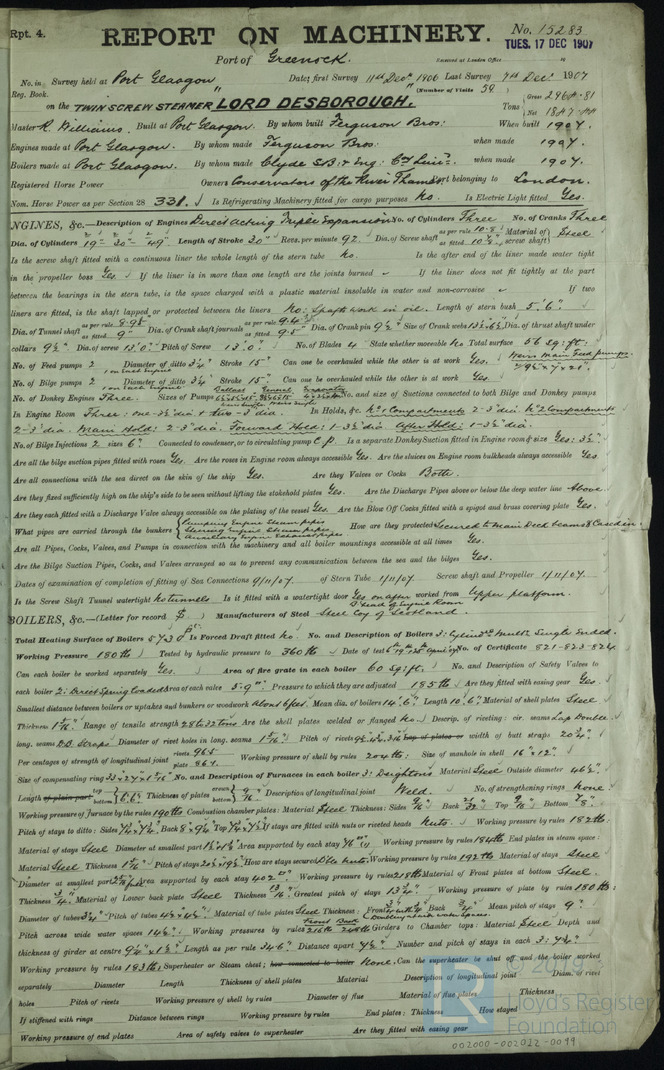 Rpt. 4.
REPORT ON MACHINERY.
No. 15283
TUES. 17 DEC 1907
Port of Greenock.
Received at London Office
No. in Survey held at Port Glasgow Date, first Survey 11th Dec. 1906 Last Survey 7th Dec. 1907
Reg. Book.
(Number of Visits 59.)
on the TWIN SCREW STEAMER, "LORD DESBOROUGH."
Tons Gross
Net
Master R. Williams. Built at Port Glasgow. By whom built Ferguson Bros: When built 1907.
Engines made at Port Glasgow. By whom made Ferguson Bros: when made 1907.
Boilers made at Port Glasgow. By whom made Clyde S.B. & Eng: Coy Limd. when made 1907.
Registered Horse Power Owners Conservators of the River Thames. Port belonging to London.
Nom. Horse Power as per Section 28 331. Is Refrigerating Machinery fitted for cargo purposes No. Is Electric Light fitted Yes.
ENGINES, &c.—Description of Engines Direct Acting Triple Expansion No. of Cylinders Three No. of Cranks Three
Dia. of Cylinders 19" 30" 49" Length of Stroke 30" Revs. per minute 92. Dia. of Screw shaft as per rule 10.8" as fitted 10⅞" Material of screw shaft Steel
Is the screw shaft fitted with a continuous liner the whole length of the stern tube No. Is the after end of the liner made water tight
in the propeller boss Yes. If the liner is in more than one length are the joints burned If the liner does not fit tightly at the part
between the bearings in the stern tube, is the space charged with a plastic material insoluble in water and non-corrosive If two
liners are fitted, is the shaft lapped or protected between the liners No: Shafts work in oil. Length of stern bush 5'.6".
Dia. of Tunnel shaft as per rule as fitted 9" Dia. of Crank shaft journals as per rule as fitted 9.5" Dia. of Crank pin 9½" Size of Crank webs Dia. of thrust shaft under
collars 9½" Dia. of screw 13'.0" Pitch of Screw 13'.0" No. of Blades 4 State whether moveable No Total surface 56 sq: ft:
No. of Feed pumps 2 Diameter of ditto 3¼" Stroke 15" Can one be overhauled while the other is at work Yes.
No. of Bilge pumps 2 Diameter of ditto 3¼" Stroke 15" Can one be overhauled while the other is at work Yes.
No. of Donkey Engines Three. Sizes of Pumps No. and size of Suctions connected to both Bilge and Donkey pumps
In Engine Room Three: one 3½" dia & two 3" dia. In Holds, &c. No 1 Compartment 2-3" dia. No 2 Compartment
2-3" dia. Main Hold: 2-3" dia. Forward Hold: 1-3½" dia. After Hold: 1-3½" dia.
No. of Bilge Injections 2 sizes 6" Connected to condenser, or to circulating pump C.P. Is a separate Donkey Suction fitted in Engine room & size Yes: 3½".
Are all the bilge suction pipes fitted with roses Yes. Are the roses in Engine room always accessible Yes. Are the sluices on Engine room bulkheads always accessible Yes.
Are all connections with the sea direct on the skin of the ship Yes. Are they Valves or Cocks Both.
Are they fixed sufficiently high on the ship's side to be seen without lifting the stokehold plates Yes. Are the Discharge Pipes above or below the deep water line Above.
Are they each fitted with a Discharge Valve always accessible on the plating of the vessel Yes. Are the Blow Off Cocks fitted with a spigot and brass covering plate Yes.
What pipes are carried through the bunkers Pumping Engine Steam pipes Steering Engine Steam pipes Auxiliary Engine Exhaust pipes. How are they protected Secured to Main Deck beams & Cased in
Are all Pipes, Cocks, Valves, and Pumps in connection with the machinery and all boiler mountings accessible at all times Yes.
Are the Bilge Suction Pipes, Cocks, and Valves arranged so as to prevent any communication between the sea and the bilges Yes.
Dates of examination of completion of fitting of Sea Connections 9/11/07. of Stern Tube 1/11/07. Screw shaft and Propeller 1/11/07.
Is the Screw Shaft Tunnel watertight No tunnels Is it fitted with a watertight door Yes on after Bhead of Engine Room worked from Upper platform.
BOILERS, &c.—(Letter for record S) Manufacturers of Steel Steel Coy of Scotland.
Total Heating Surface of Boilers 5730 Is Forced Draft fitted No. No. and Description of Boilers 3: Cylind. Multr. Single Ended.
Working Pressure 180 lbs Tested by hydraulic pressure to 360 lbs Date of test No. of Certificate 821-823-824
Can each boiler be worked separately Yes. Area of fire grate in each boiler 60 sq: ft. No. and Description of Safety Valves to
each boiler 2: Direct Spring loaded Area of each valve 5.9" Pressure to which they are adjusted 185 lbs Are they fitted with easing gear Yes.
Smallest distance between boilers or uptakes and bunkers or woodwork About 6 feet. Mean dia. of boilers 14'.6" Length 10'.6" Material of shell plates Steel
Thickness 1 5/16" Range of tensile strength 28 to 32 tons Are the shell plates welded or flanged No. Descrip. of riveting: cir. seams Lap Double
long. seams D.B. Straps Diameter of rivet holes in long. seams 1 5/16" Pitch of rivets lap of plates or width of butt straps 20¾"
Per centages of strength of longitudinal joint rivets 96.5 plate 86.1 Working pressure of shell by rules 204 lbs: Size of manhole in shell 16" x 12"
Size of compensating ring No. and Description of Furnaces in each boiler 3: Deightons Material Steel Outside diameter 46½"
Length of plain part top bottom Thickness of plates crown bottom 9/16" Description of longitudinal joint Weld. No. of strengthening rings None.
Working pressure of furnace by the rules 190 lbs Combustion chamber plates: Material Steel Thickness: Sides 9/16" Back 21/32" Top 9/16" Bottom 7/8"
Pitch of stays to ditto: Sides Back Top If stays are fitted with nuts or riveted heads Nuts. Working pressure by rules 182 lbs.
Material of stays Steel Diameter at smallest part Area supported by each stay Working pressure by rules 184 lbs End plates in steam space:
Material Steel Thickness 1 5/16" Pitch of stays How are stays secured Dbl. Nuts. Working pressure by rules 192 lbs Material of stays Steel
Diameter at smallest part Area supported by each stay 402 Working pressure by rules 218 lbs Material of Front plates at bottom Steel.
Thickness ¾" Material of Lower back plate Steel Thickness 13/16" Greatest pitch of stays 13¾" Working pressure of plate by rules 180 lbs:
Diameter of tubes 3¼" Pitch of tubes 4½" x 4½" Material of tube plates Steel Thickness: Front Back ¾" Mean pitch of stays 9"
Pitch across wide water spaces 14½" Working pressures by rules Girders to Chamber tops: Material Steel Depth and
thickness of girder at centre Length as per rule 34.6" Distance apart 7½" Number and pitch of stays in each 3: 7¾"
Working pressure by rules 183 lbs: Superheater or Steam chest; how connected to boiler None. Can the superheater be shut off and the boiler worked
separately Diameter Length Thickness of shell plates Material Description of longitudinal joint Diam. of rivet
holes Pitch of rivets Working pressure of shell by rules Diameter of flue Material of flue plates Thickness
If stiffened with rings Distance between rings Working pressure by rules End plates: Thickness How stayed
Working pressure of end plates Area of safety valves to superheater Are they fitted with easing gear
© 2019
Lloyd's Register
Foundation
002000-002022-0099